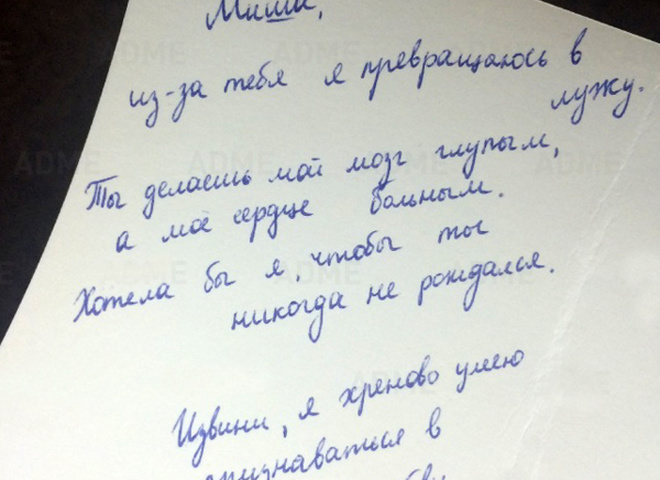 Миши,
из-за тебя я превращаюсь в
лужу.
Ты делаешь мой мозг глупым,
а моё сердце больным.
Хотела бы я, чтобы ты
никогда не рождался.
Извини, я хреново умею
признаваться в